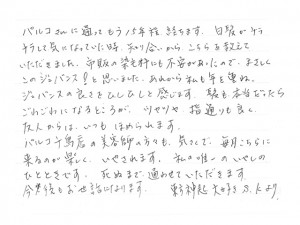 パルコさんに通ってもう15年程経ちます。白髪がチラ
チラして気になっていた時、知り合いから、こちらを教えて
いただきました。市販の染毛料にも不安があったので、まさしく
このジャパンス!と思いました。あれから私も年を重ね、
ジャパンスの良さをひしひしと感じます。髪も本当だったら
ごわごわになるところが、ツヤツヤ、指通りも良く、
友人からは、いつもほめられます。
パルコ千鳥店の美容師の方々も、気さくで、毎月こちらに
来るのが楽しく、いやされます。私の唯一のいやしの
ひとときです。死ぬまで通わせていただきます。
今後もお世話になります。東神起大好きS.Kより